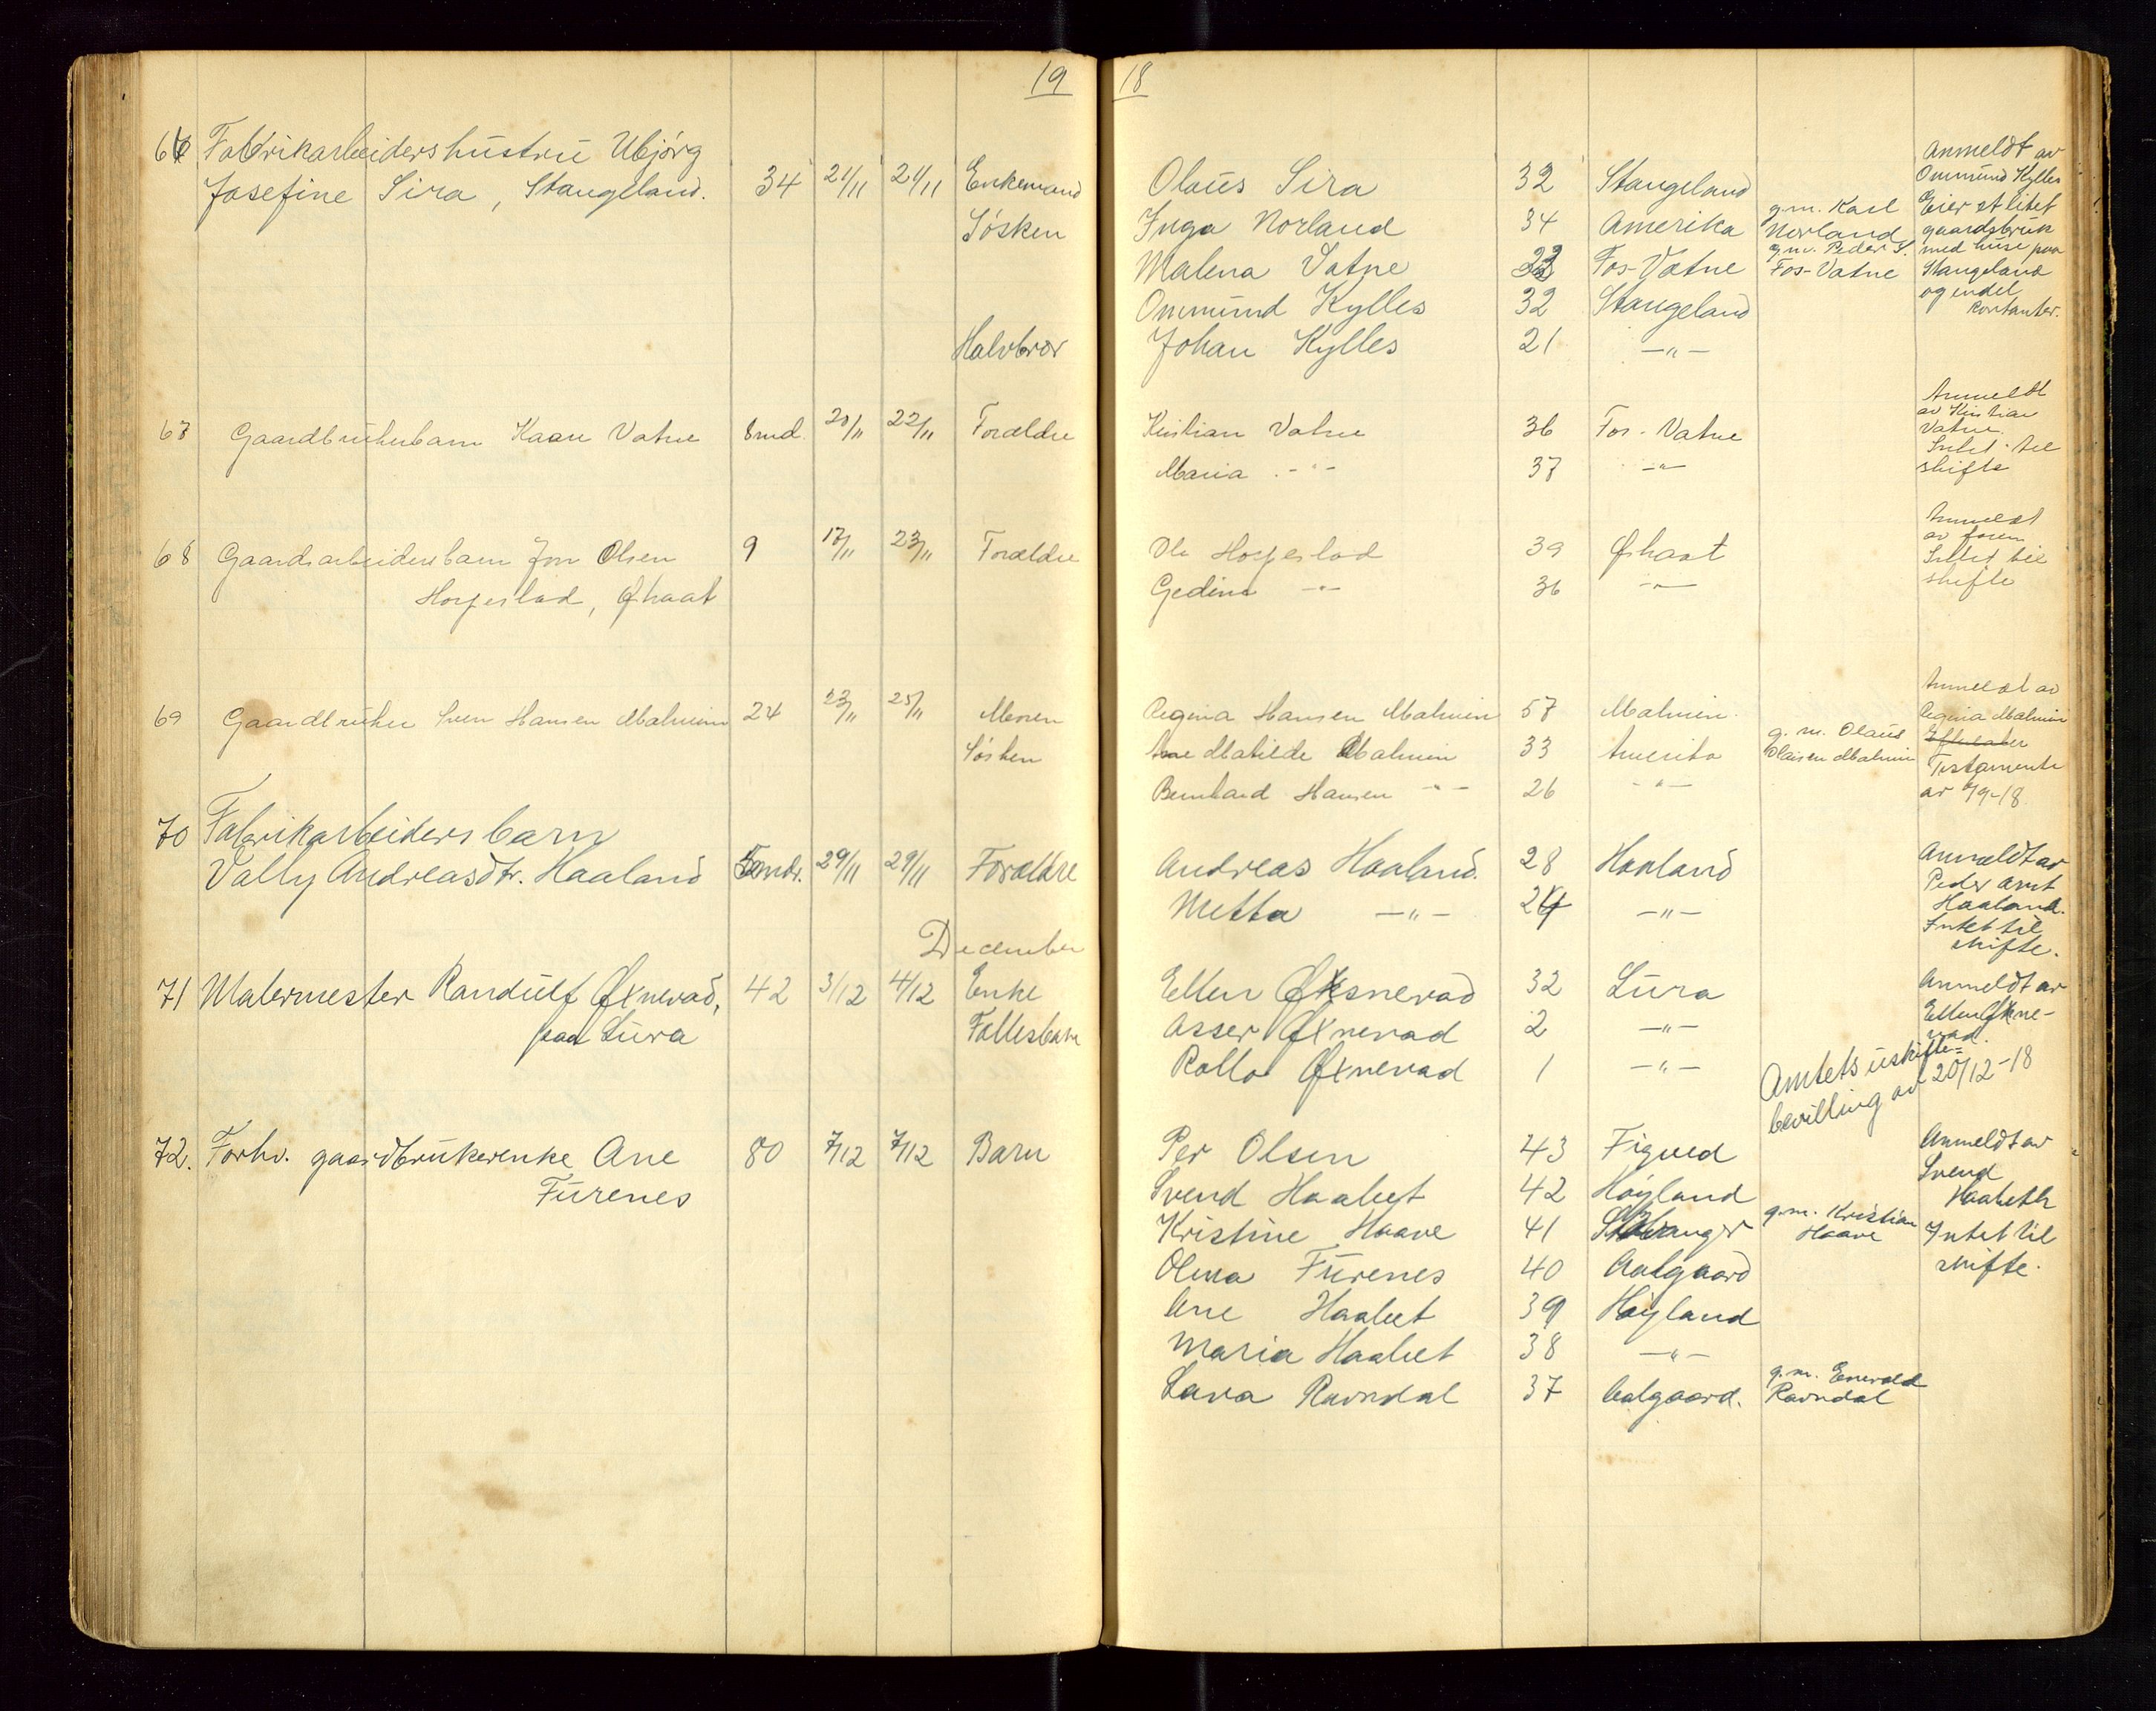 19 18
66 Fabrikarbeidershustru Ubjørg
Josefine Sira, Stangeland. 34 21/11 21/11 Enkemand Olaus Sira 32 Stangeland Anmeldt av Ommund Kylles
Søsken Inga Norland 34 Amerika g.m. Karl Norland Eier et litet gaardsbruk
Malena Vatne 33 Fos-Vatne g.m. Peder S. Fos-Vatne med huse paa Stangeland
Ommund Kylles 32 Stangeland og endel kontanter.
Halvbror Johan Kylles 21 —"—
67 Gaardbrukerbarn Kaare Vatne 8md. 20/11 22/11 Forældre Kristian Vatne 36 Fos-Vatne Anmeldt av Kristian Vatne.
Maria —"— 37 —"— Intet til skifte
68 Gaardsarbeidersbarn Jon Olsen 9 17/11 23/11 Forældre Ole Horgeslad 39 Øshaat Anmeldt av faren
Horgeslad, Øshaat Gedine —"— 36 —"— Intet til skifte
69 Gaardbruker Sven Hansen Malmin 24 23/11 25/11 Moren Regina Hansen Malmin 57 Malmin. Anmeldt av Regina Malmin
Søsken Ane Matilde Malmin 33 Amerika g.m. Olaus Olaisen Malmin Testamente
Bernhard Hansen —"— 26 —"— av /9-18.
70 Fabrikarbeidersbarn
Vally Andreasdtr. Haaland 29/11 29/11 Forældre Andreas Haaland. 28 Haaland Anmeldt av Peder Arnt
Metta —"— 24 —"— Haaland. Intet til skifte.
December
71 Malermester Randulf Øxnevad, 42 3/12 4/12 Enke Ellen Øksnevad 32 Lura Anmeldt av
paa Lura Fellesbarn Asser Øxnevad 2 —"— Ellen Øxnevad.
Rollo Øxnevad 1 —"— Amtets uskifte=
bevilling av 20/12-18
72. Forhv. gaardbrukerenke Ane 80 7/12 7/12 Barn Per Olsen 43 Figved Anmeldt av
Furenes Svend Haabet 42 Høyland Svend Haabeth
Kristine Haave 41 Stavanger g.m. Kristian Haave Intet til
Olena Furenes 40 Aalgaard skifte.
Ane Haabet 39 Høyland
Maria Haabet 38 —"—
Lava Ravndal 37 Aalgaard. g.m. Enevald Ravndal